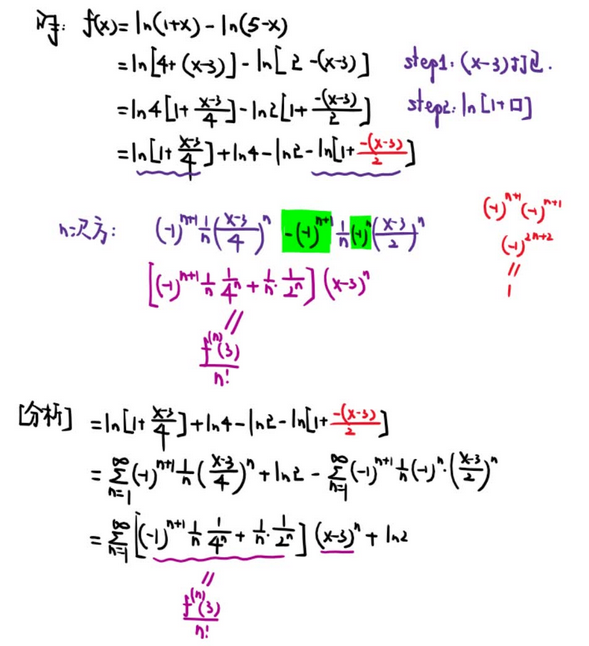 解: f(x) = ln(1+x) - ln(5-x)
= ln[4+(x-3)] - ln[2-(x-3)] step1: (x-3)打包.
= ln4[1+\frac{x-3}{4}] - ln2[1+\frac{-(x-3)}{2}] step2: ln[1+口]
= ln[1+\frac{x-3}{4}] + ln4 - ln2 - ln[1+\frac{-(x-3)}{2}]
n次方: (-1)^{n+1} \frac{1}{n} (\frac{x-3}{4})^n -(-1)^{n+1} \frac{1}{n} (-1)^n (\frac{x-3}{2})^n
(-1)^{n+1} (-1)^{n+1}
(-1)^{2n+2}
=
1
[(-1)^{n+1} \frac{1}{n} \frac{1}{4^n} + \frac{1}{n} · \frac{1}{2^n}] (x-3)^n
=
\frac{f^{(n)}(3)}{n!}
[分析] = ln[1+\frac{x-3}{4}] + ln4 - ln2 - ln[1+\frac{-(x-3)}{2}]
= \sum_{n=1}^{∞} (-1)^{n+1} \frac{1}{n} (\frac{x-3}{4})^n + ln2 - \sum_{n=1}^{∞} (-1)^{n+1} \frac{1}{n} (-1)^n · (\frac{x-3}{2})^n
= \sum_{n=1}^{∞} [(-1)^{n+1} \frac{1}{n} \frac{1}{4^n} + \frac{1}{n} · \frac{1}{2^n}] (x-3)^n + ln2
=
\frac{f^{(n)}(3)}{n!}